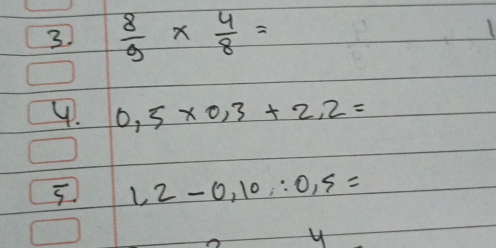 3. 8/9 × 4/8 =
4. 0,5 × 0,3 + 2,2 =
5. 1,2 - 0,10 : 0,5 =
4